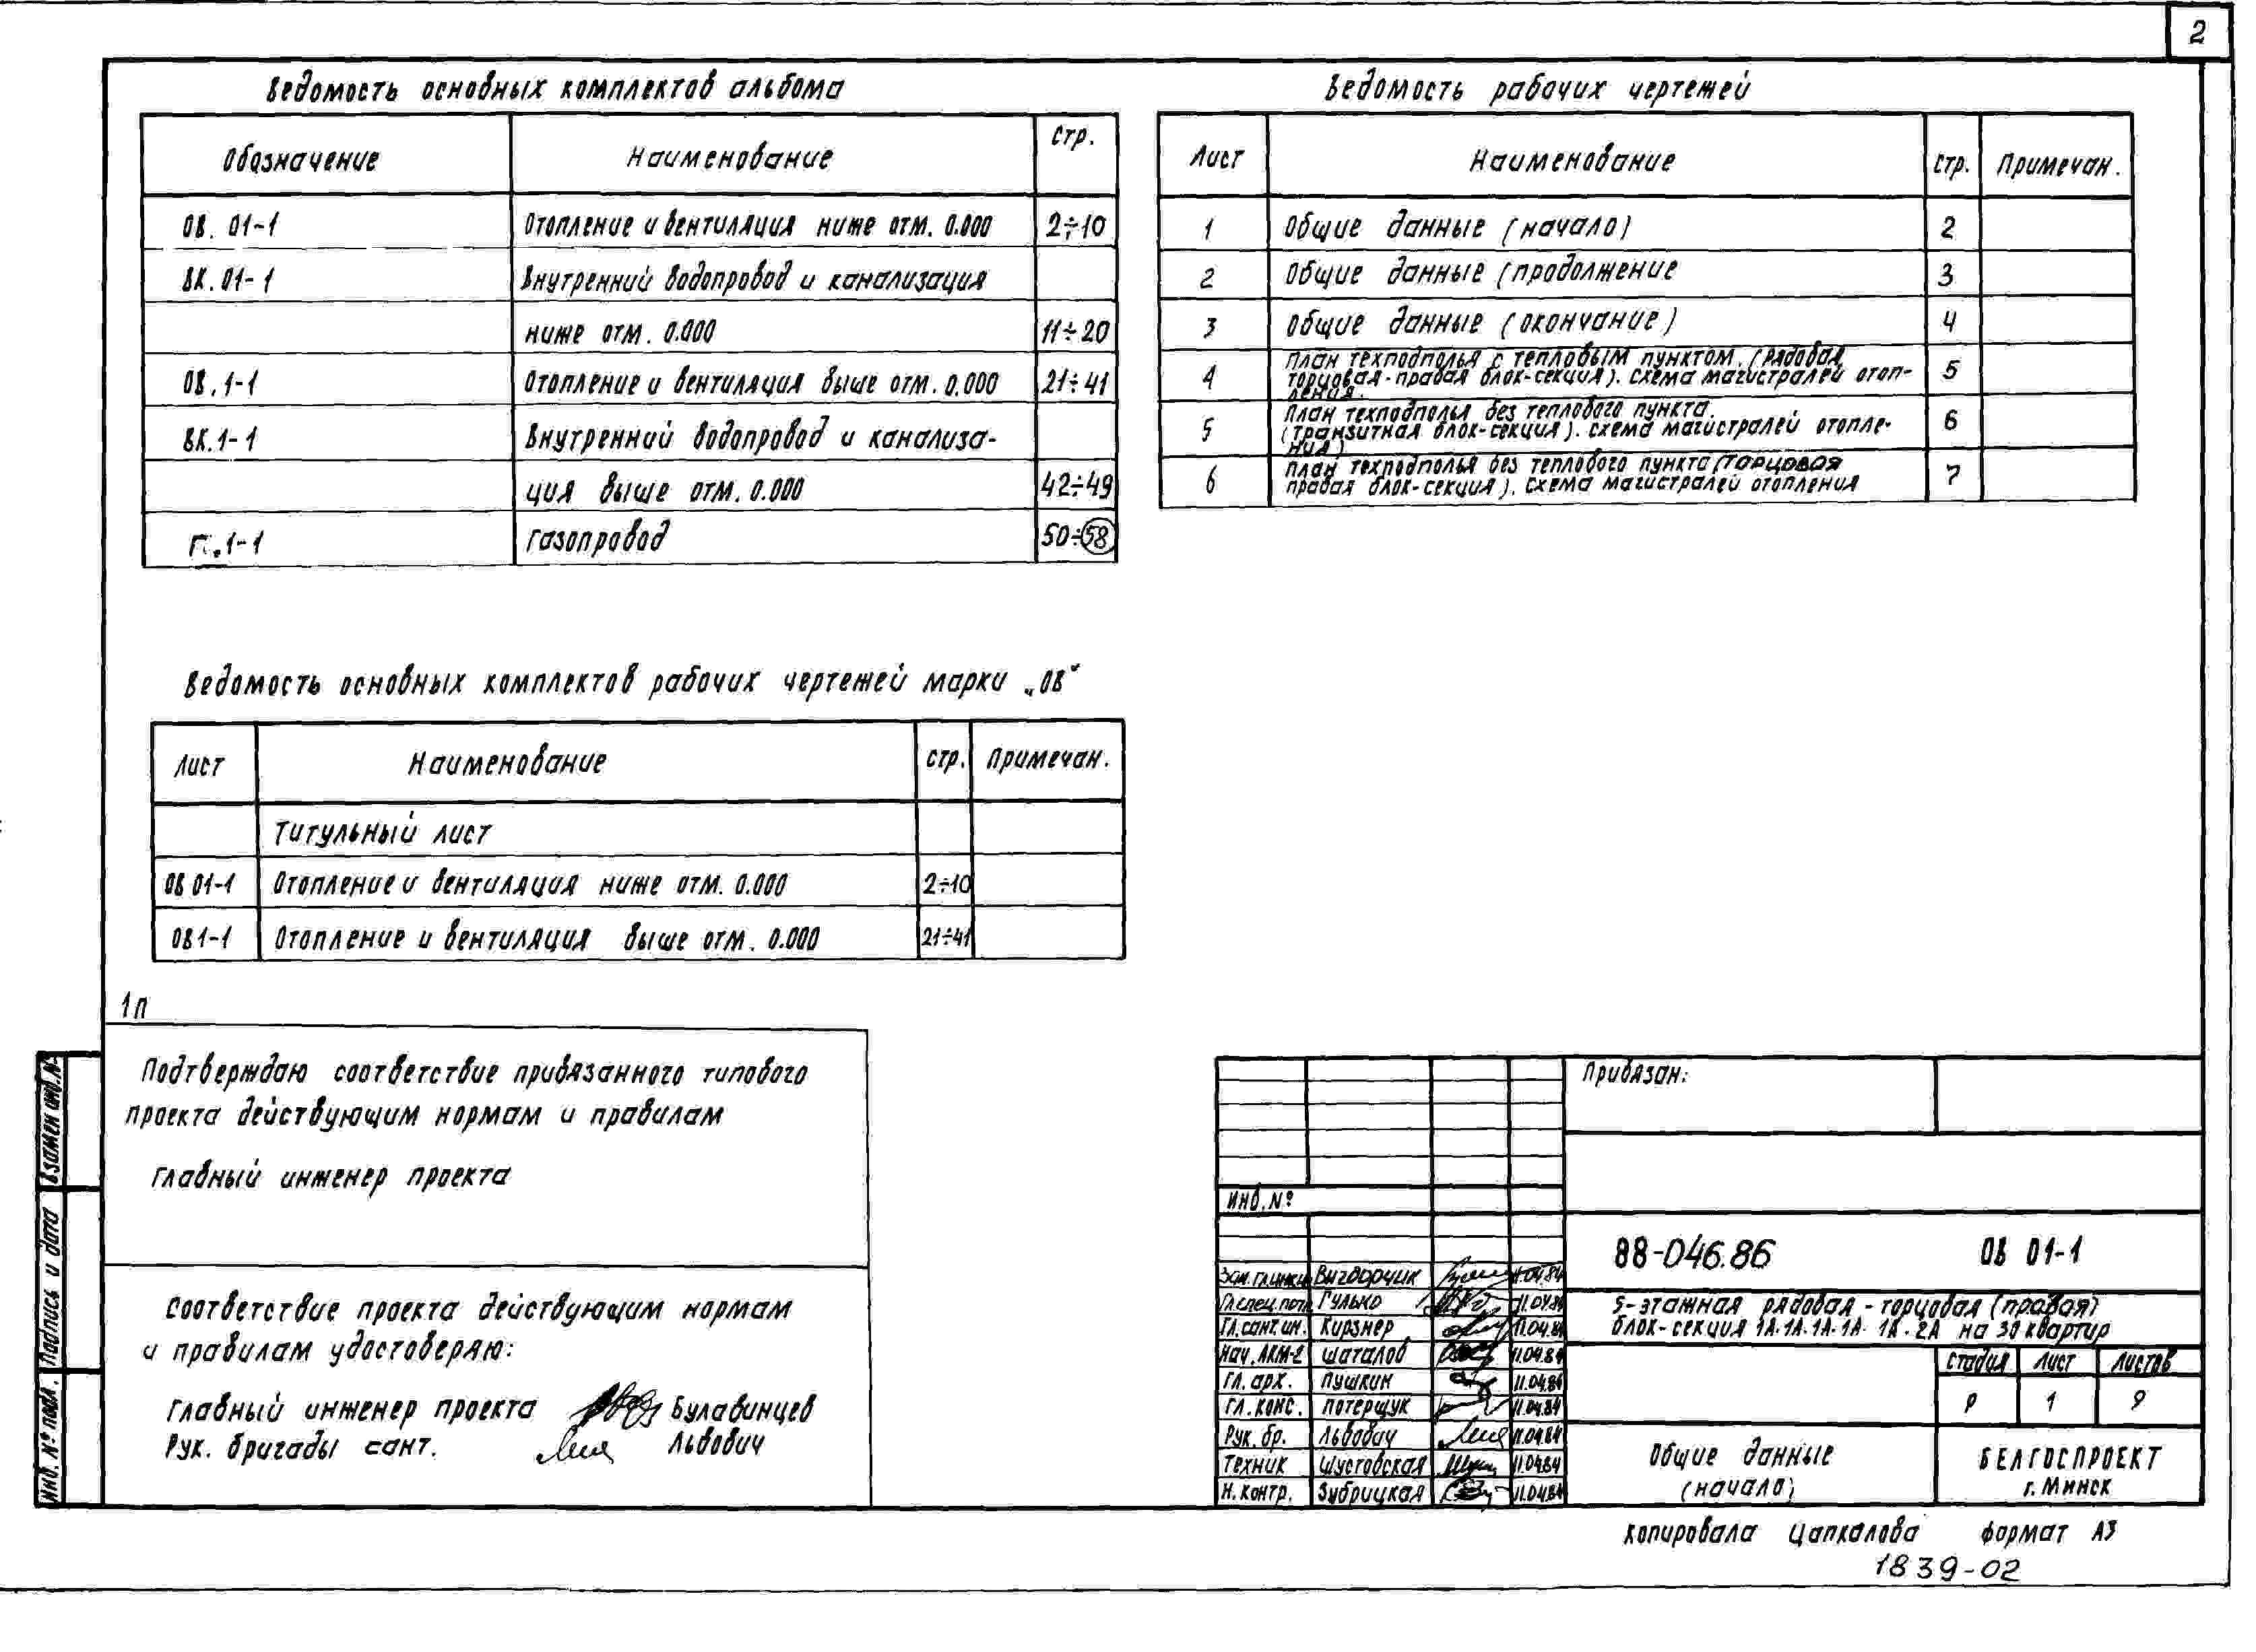 2
Ведомость основных комплектов альбома
Обозначение Наименование Стр.
ОВ. 01-1 Отопление и вентиляция ниже отм. 0.000 2÷10
ВК. 01-1 Внутренний водопровод и канализация
ниже отм. 0.000 11÷20
ОВ. 1-1 Отопление и вентиляция выше отм. 0.000 21÷41
ВК. 1-1 Внутренний водопровод и канализа-
ция выше отм. 0.000 42÷49
1-1 Газопровод 50÷58
Ведомость рабочих чертежей
Лист Наименование Стр. Примечан.
1 Общие данные (начало) 2
2 Общие данные (продолжение 3
3 Общие данные (окончание) 4
4 План техподполья с тепловым пунктом. (рядовая,
торцовая-правая блок-секция). Схема магистралей отоп-
ления. 5
5 План техподполья без теплового пункта.
(транзитная блок-секция). Схема магистралей отопле-
ния) 6
6 План техподполья без теплового пункта (торцовая
правая блок-секция). Схема магистралей отопления 7
Ведомость основных комплектов рабочих чертежей марки „ОВ“
Лист Наименование Стр. Примечан.
Титульный лист
ОВ 01-1 Отопление и вентиляция ниже отм. 0.000 2÷10
ОВ 1-1 Отопление и вентиляция выше отм. 0.000 21÷41
1п
Подтверждаю соответствие привязанного типового
проекта действующим нормам и правилам
Главный инженер проекта
Соответствие проекта действующим нормам
и правилам удостоверяю:
Главный инженер проекта Булавинцев
Рук. бригады сант. Львович
Взамен инв. №
Подпись и дата
Инв. № подл.
Привязан:
Инв. №
88-046.86 ОВ 01-1
5-этажная рядовая-торцовая (правая)
блок-секция 1А.1А.1А.1А.1А.2А на 30 квартир
Зам. гл. инж. Вигдорчик 11.04.84
Гл. спец. Гулько 11.04.84
Гл. сант. ин. Кирзнер 11.04.84
Нач. АКМ-2 Шаталов 11.04.84
Гл. арх. Пушкин 11.04.84
Гл. конс. Потерщук 11.04.84
Рук. бр. Львович 11.04.84
Техник Шустовская 11.04.84
Н. контр. Зубрицкая 11.04.84
Стадия Лист Листов
Р 1 9
Общие данные
(начало)
БЕЛГОСПРОЕКТ
г. Минск
Копировала Цапкалова Формат А3
1839-02